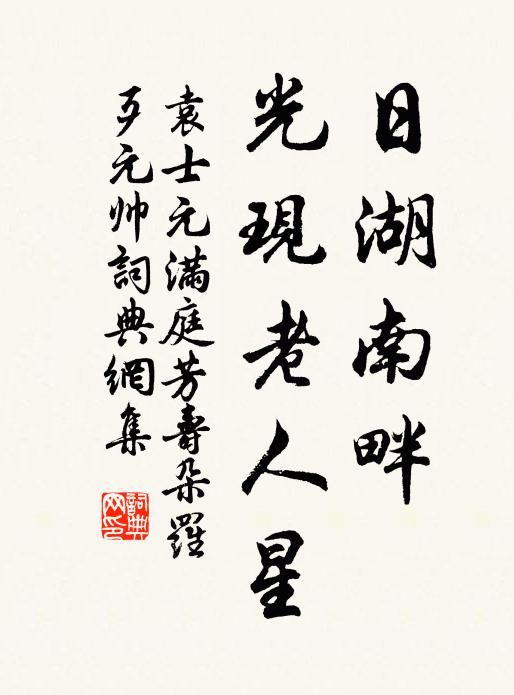 日湖南畔
光現老人星
袁士元滿庭芳壽朵羅
歹元帅詞典網集
詞典網印